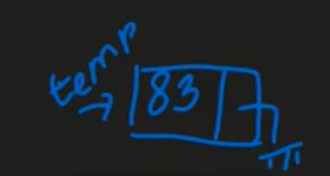 temp
83